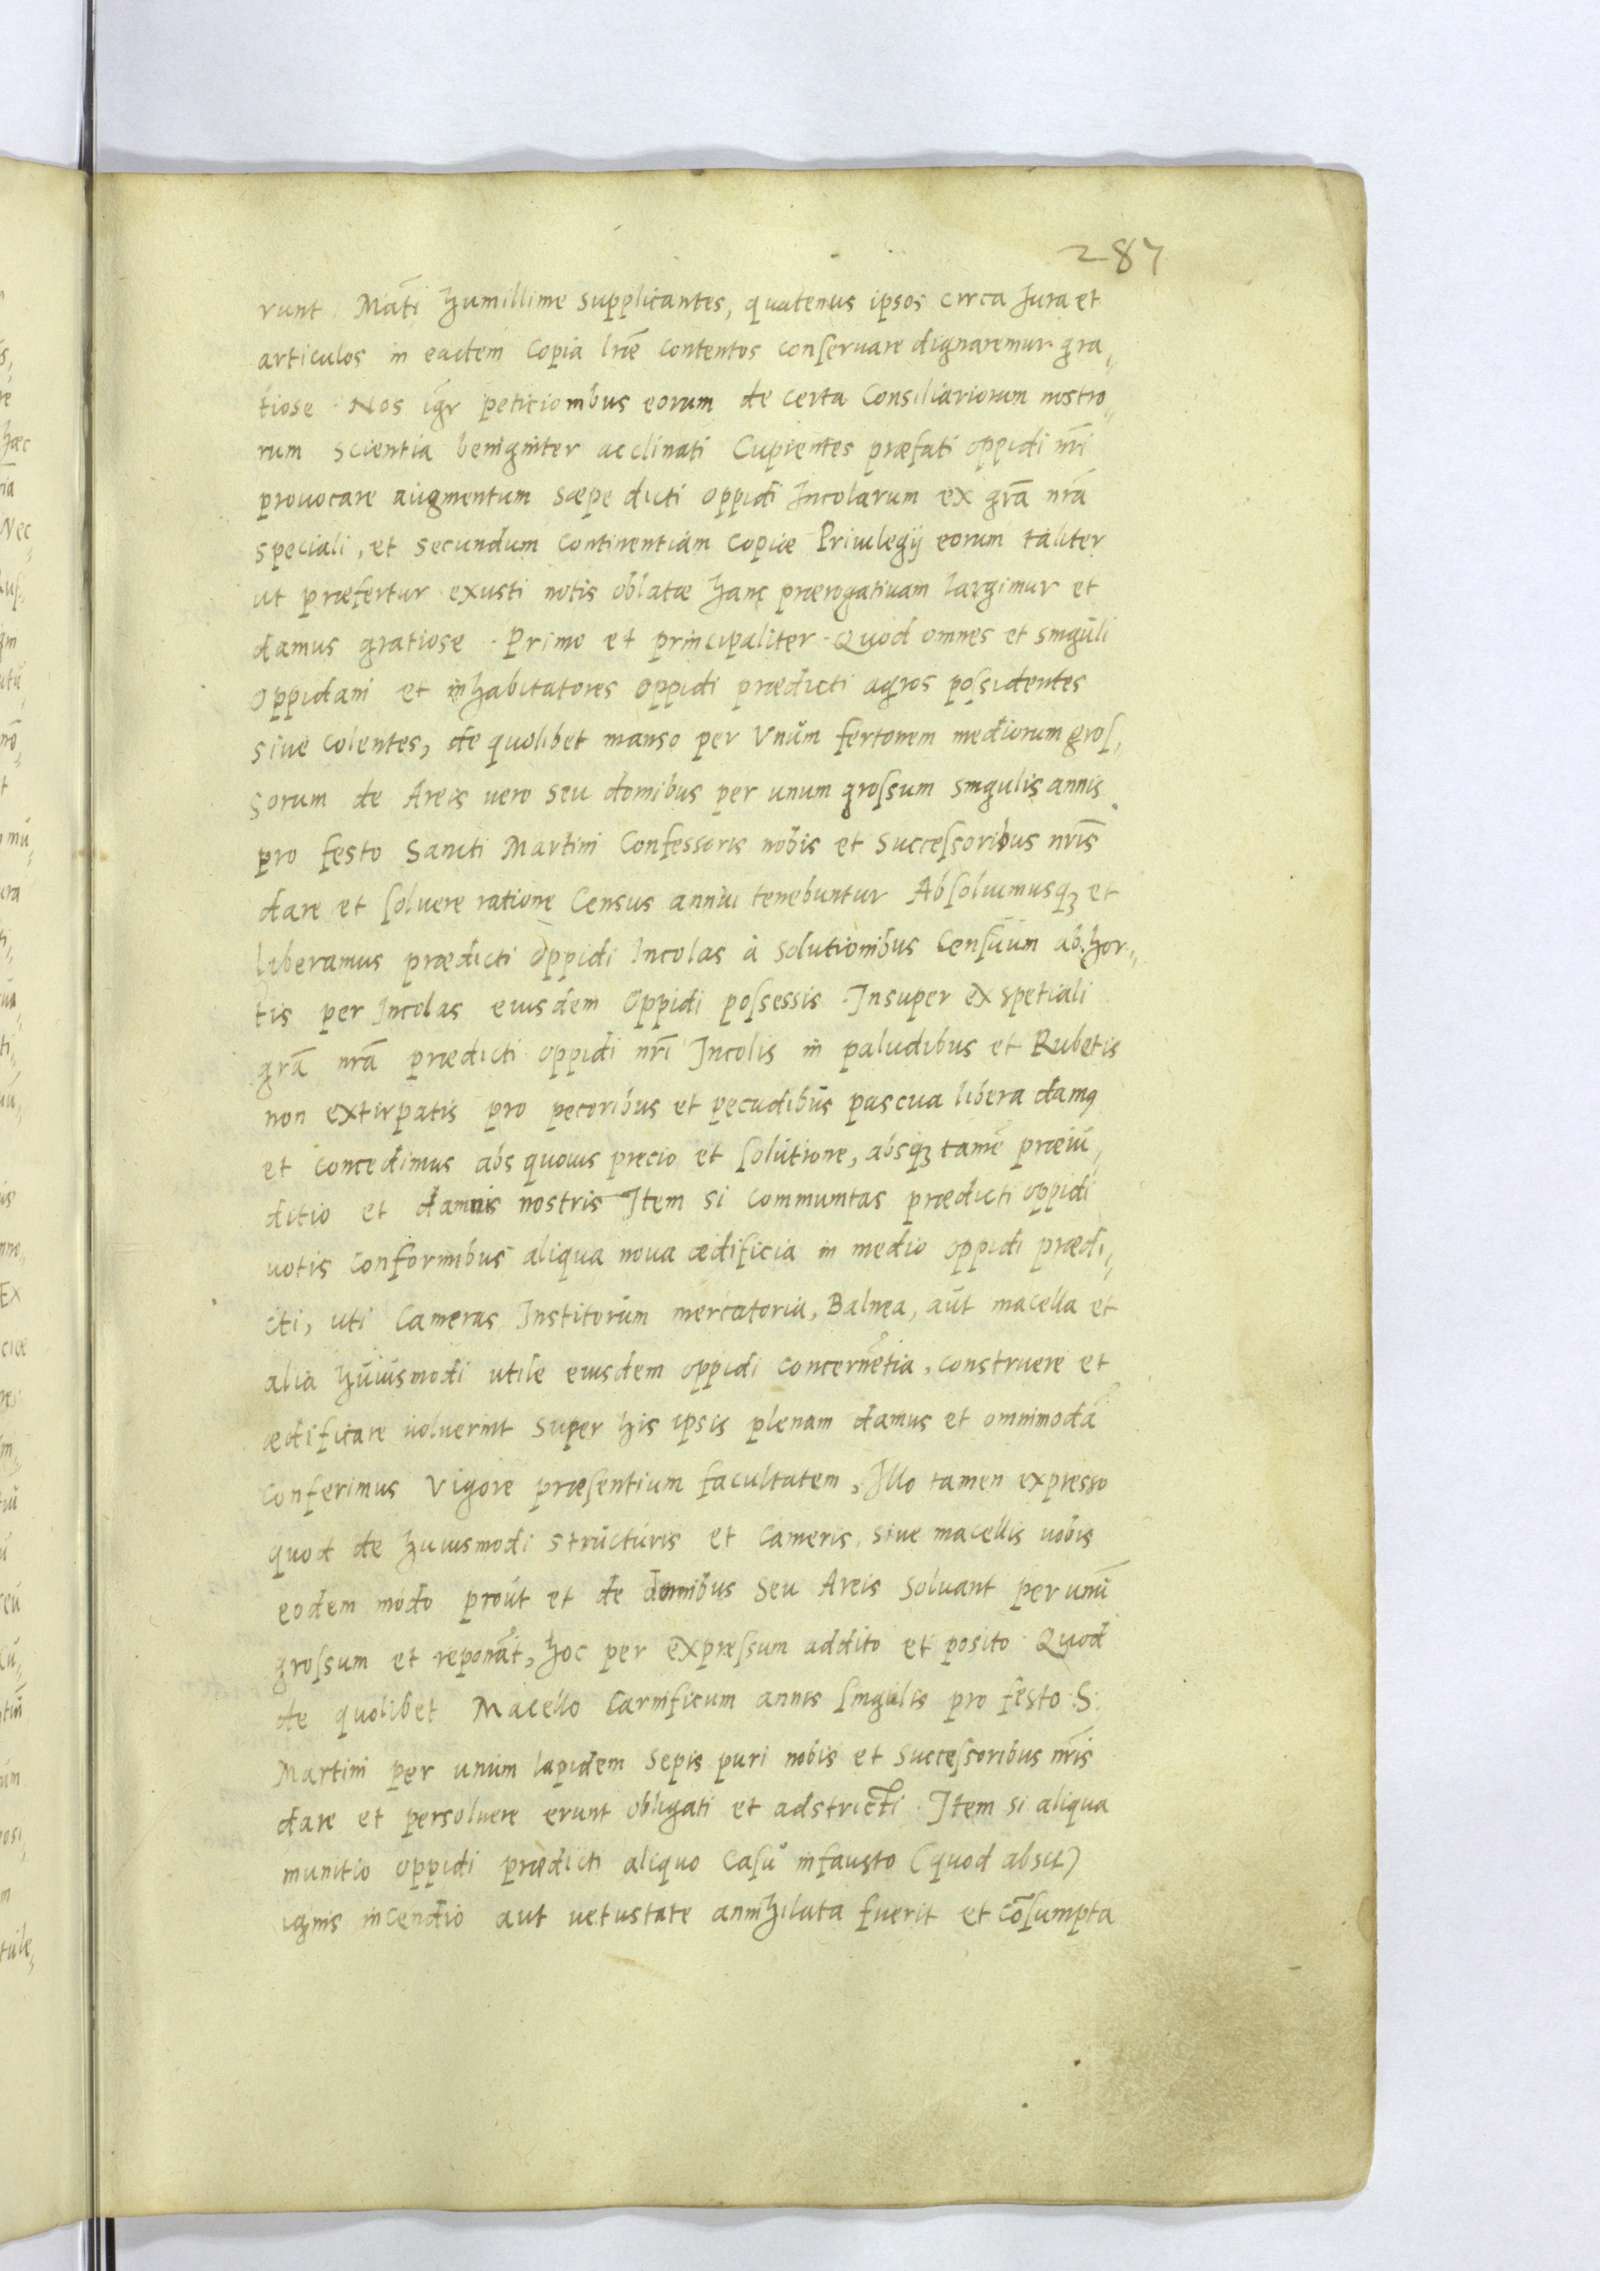 287
runt Ma͠ti humillime supplicantes, quatenus ipsos circa Jura et
articulos in eadem Copia lr̃e contentos conſeruare dignaremur gra„
tiose. Nos igr̃ peticionibus eorum de certa Consiliariorum nostro„
rum scientia benigniter acclinati Cupientes præfati oppidi nr̃i
prouocare augmentum sæpe dicti oppidi Incolarum ex gr̃a nr̃a
speciali, et secundum continentiam copiæ Priuilegij eorum taliter
ut præfertur exusti notis oblatæ hanc prærogatiuam largimur et
damus gratiose. Primo et principaliter. Quod omnes et singuli
oppidani et inhabitatores oppidi prædicti agros poſsidentes
siue colentes, de quolibet manso per Vnum fertonem mediorum groſ„
sorum de Areis uero seu domibus per unum groſsum singulis annis
pro festo Sancti Martini Confessoris nobis et Succeſsoribus nr̃is
dare et ſoluere ratione Census annui tenebuntur Abſoluimusqꝫ et
liberamus prædicti oppidi Incolas à solutionibus Cenſuum ab hor„
tis per Incolas eiusdem Oppidi poſsessis. Insuper ex spetiali
gr̃a nr̃a prædicti oppidi nr̃i Incolis in paludibus et Rubetis
non extirpatis pro pecoribus et pecudibus pascua libera damꝰ
et concedimus abs quouis precio et ſolutione, absqꝫ tame͂ præiu„
ditio et damnis nostris Item si communitas prædicti oppidi
uotis conformibus aliqua noua ædificia in medio oppidi prædi„
cti, uti Cameras Institorum mercatoria, Balnea, aut macella et
alia huiusmodi utile eiusdem oppidi concerne͂tia, construere et
ædificare uoluerint super his ipsis plenam damus et omnimoda͂
conferimus Vigore præſentium facultatem, Illo tamen expresso
quod de huiusmodi structuris et Cameris, siue macellis nobis
eodem modo prout et de domibus seu Areis soluant per unu͂
groſsum et repona͂t, hoc per expreſsum addito et posito Quod
de quolibet Macello Carnificum annis ſingulis pro festo S.
Martini per unum lapidem sepis puri nobis et Succeſsoribus nr̃is
dare et persoluere erunt obligati et adstricti. Item si aliqua
munitio oppidi prædicti aliquo Caſu infausto (quod absit)
ignis incendio aut uetustate annihilata fuerit et co͂ſumpta